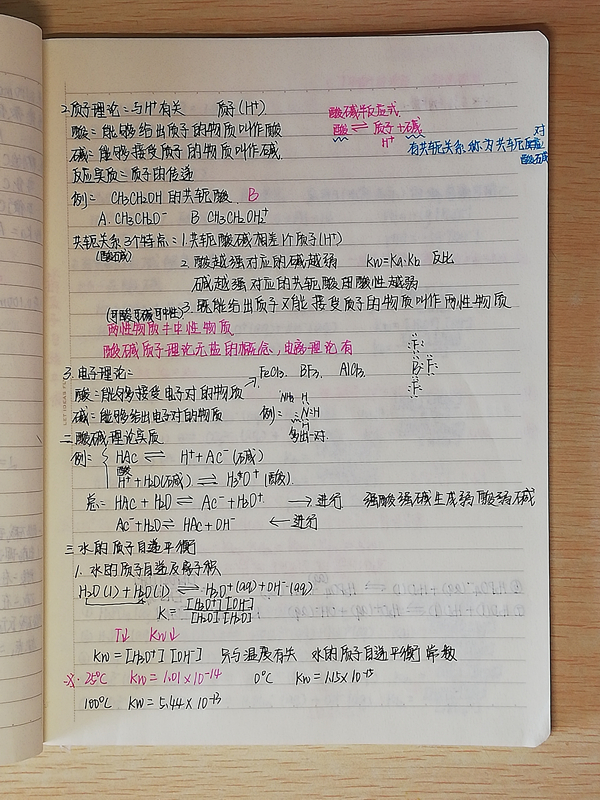 2.质子理论：与H⁺有关 质子(H⁺)
酸碱半反应式
酸：能够给出质子的物质叫作酸
酸 ⇌ 质子+碱
H⁺
碱：能够接受质子的物质叫作碱.
有共轭关系,称为共轭
对
酸碱
反应实质：质子的传递
例：CH₃CH₂OH 的共轭酸 B
A. CH₃CH₂O⁻ B CH₃CH₂OH₂⁺
共轭关系3个特点：1.共轭酸碱相差1个质子(H⁺)
(酸碱)
2. 酸越强对应的碱越弱 Kw=Ka·Kb 反比
碱越强对应的共轭酸用酸性越弱
(可酸可碱可中性) 3. 既能给出质子又能接受质子的物质叫作两性物质
两性物质≠中性物质
酸碱质子理论无盐的概念,电离理论有
3. 电子理论： FeCl₃. BF₃. AlCl₃.
酸：能够接受电子对的物质
碱：能够给出电子对的物质 例：
NH₃ H
:N:H
H
多出一对.
F
B F
F
二.酸碱理论实质
例： HAc ⇌ H⁺+Ac⁻(碱)
酸
H⁺+H₂O(碱) ⇌ H₃O⁺(酸).
总：HAc+H₂O ⇌ Ac⁻+H₃O⁺ → 进行 强酸强碱生成弱酸弱碱
Ac⁻+H₂O ⇌ HAc+OH⁻ ← 进行
三.水的质子自递平衡
1. 水的质子自递及离子积
H₂O(l)+H₂O(l) ⇌ H₃O⁺(aq)+OH⁻(aq)
K= [H₃O⁺][OH⁻]
[H₂O][H₂O]
T↓ Kw↓
Kw=[H₃O⁺][OH⁻] 只与温度有关 水的质子自递平衡常数
※·25℃ Kw=1.01×10⁻¹⁴ 0℃ Kw=1.15×10⁻¹⁵
100℃ Kw=5.44×10⁻¹³